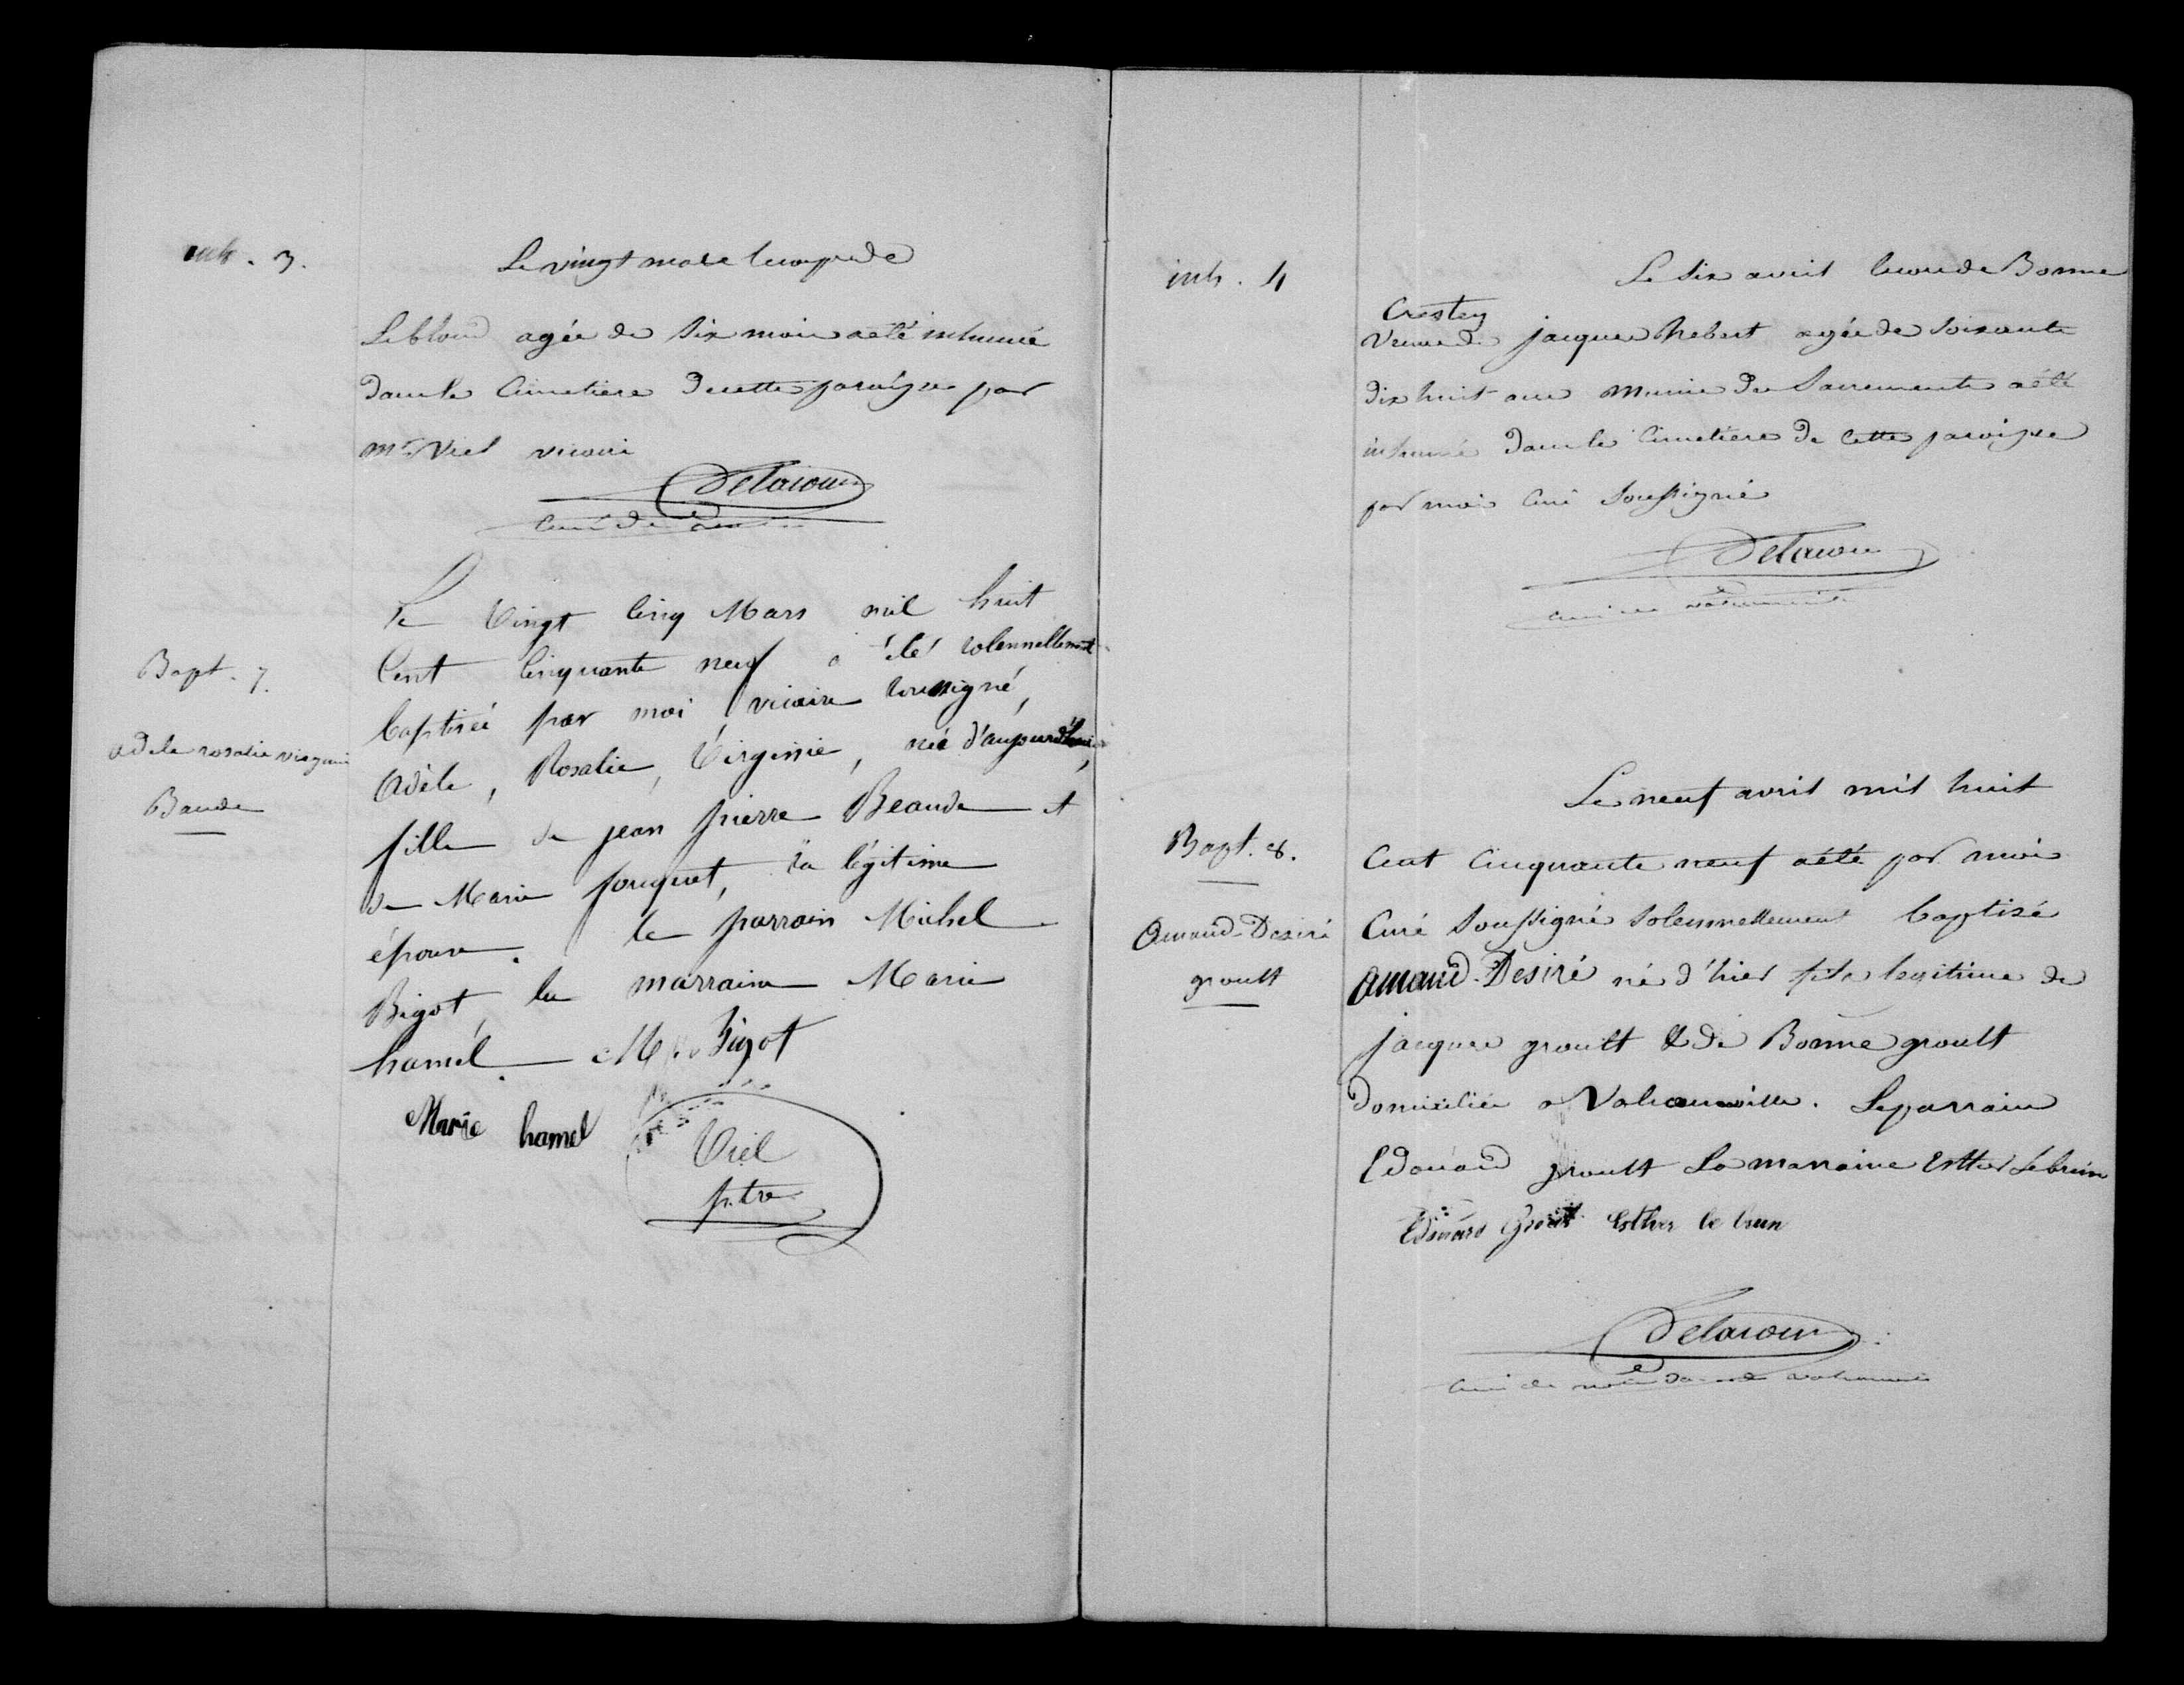 inh. 3.
Le vingt mars le corps de
Leblond agée de six mois a eté inhumé
dans le cimetiere de cette paroisse par
Mr Viel vicaire
Delacour
curé de
Bapt. 7.
adele rosalie virginie
Baude
Le Vingt Cinq Mars mil huit
Cent Cinquante neuf a été solennellement
baptisée par moi, vicaire soussigné,
Adèle, Rosalie, Virginie, née d'aujourd'hui,
fille de jean pierre Beaude et
de Marie fouquet, sa légitime
épouse. le parrain Michel
Bigot, la marraine Marie
hamel. M Bigot
Marie hamel
Viel
ptre
inh. 4
Le six avril le corps de Bonne
Crestey
veuve de jacques hebert agée de soixante
dix huit ans munie des Sacrements a été
inhumé dans le cimetiere de cette paroisse
par moi curé soussigné
Delacour
curé de
Le neuf avril mil huit
Bapt. 8.
Amand-Desiré
groult
cent cinquante neuf a été par moi
Curé soussigné solennellement baptisé
amand-Desiré né d'hier fils legitime de
jacques groult & de Bonne groult
domiciliés a Valcanville. Le parrain
Edouard groult La marraine Esther Lebrun
Edouard Groult Esther le brun
Delacour
curé de